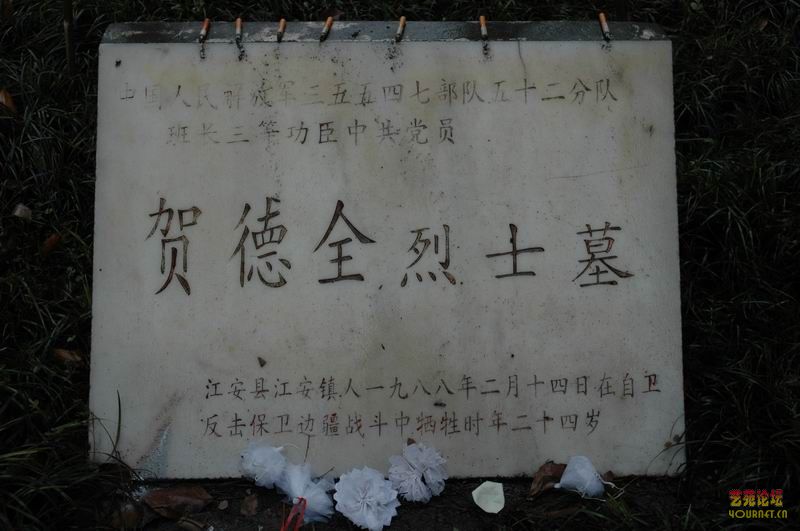 中国人民解放军三五五四七部队五十二分队
班长三等功臣中共党员
贺德全烈士墓
江安县江安镇人一九八八年二月十四日在自卫
反击保卫边疆战斗中牺牲时年二十四岁
艺苑论坛
YOURNET.CN